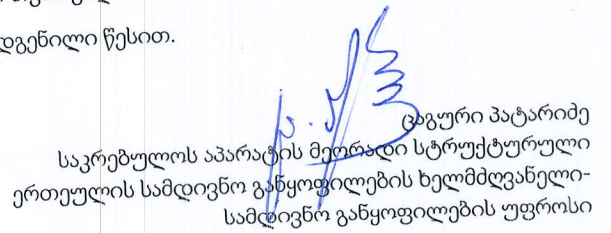 დგენილი წესით.
ცაგური პატარიძე
საკრებულოს აპარატის მეორადი სტრუქტურული
ერთეულის სამდივნო განყოფილების ხელმძღვანელი-
სამდივნო განყოფილების უფროსი